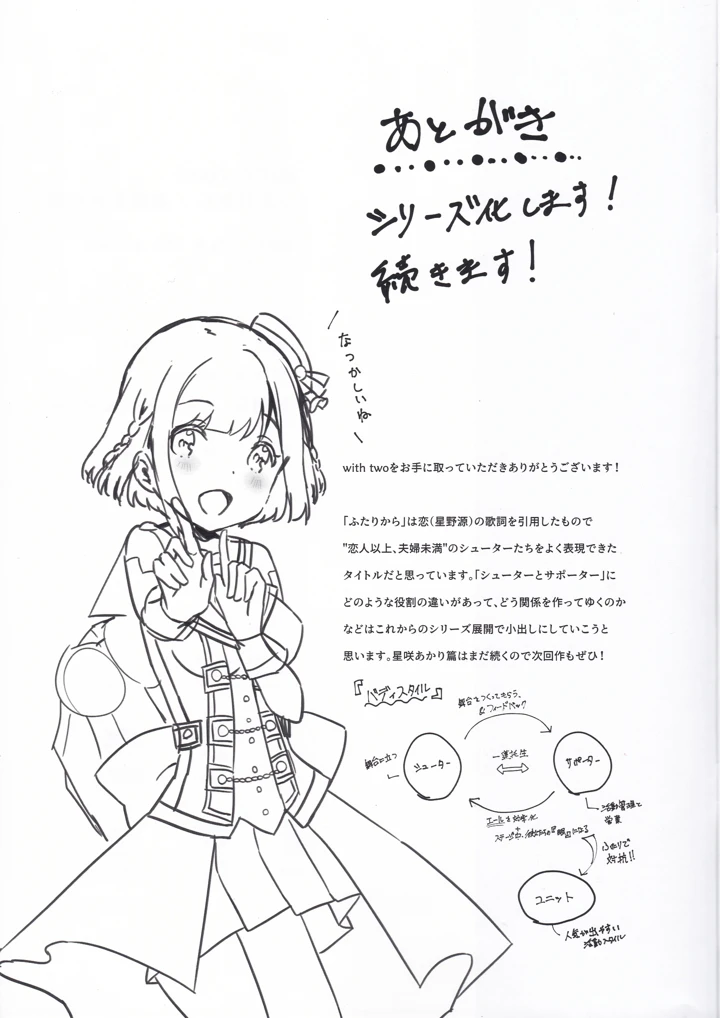 あとがき
シリーズ化します！
続きます！
なつかしいね
with twoをお手に取っていただきありがとうございます！
「ふたりから」は恋（星野源）の歌詞を引用したもので
"恋人以上、夫婦未満"のシューターたちをよく表現できた
タイトルだと思っています。「シューターとサポーター」に
どのような役割の違いがあって、どう関係を作ってゆくのか
などはこれからのシリーズ展開で小出しにしていこうと
思います。星咲あかり篇はまだ続くので次回作もぜひ！
『バディスタイル』
舞台をつくってもらう、
&フィードバック
舞台に立つ
シューター
一蓮托生
サポーター
エールを
活動管理と
営業
ふたりで
対抗!!
ユニット
人気が出やすい
活動スタイル